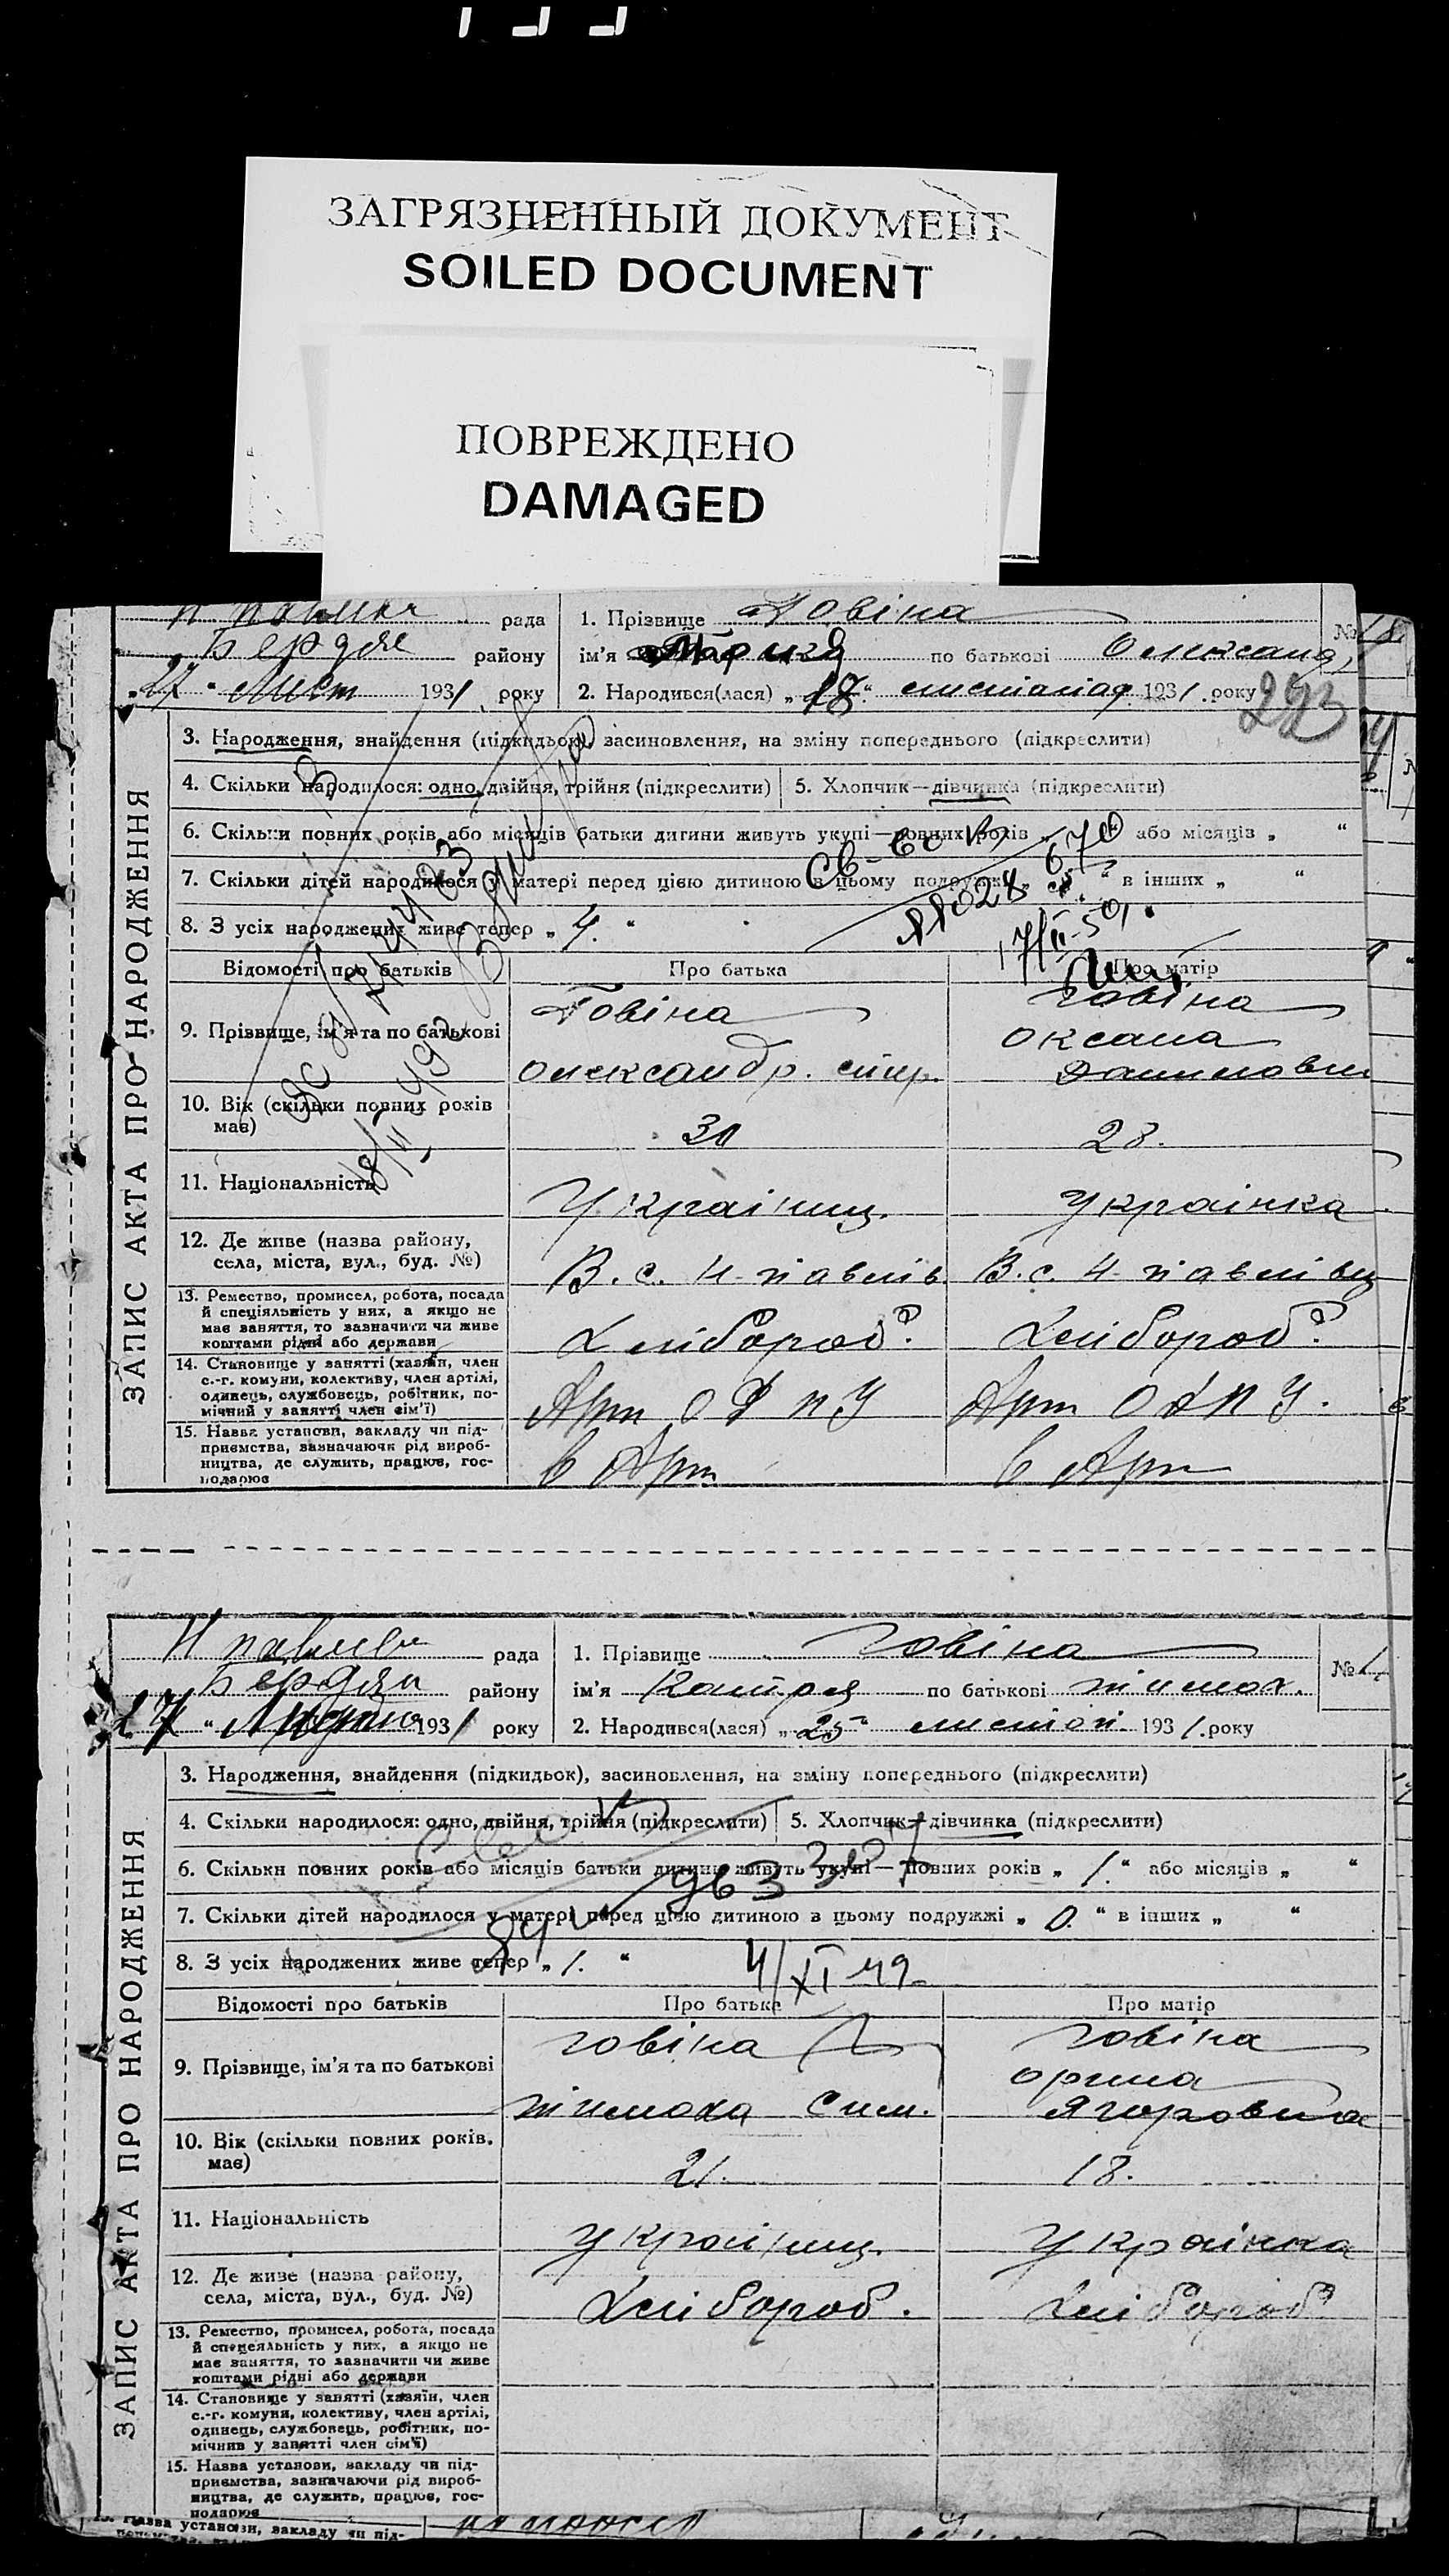 ЗАГРЯЗНЕННЫЙ ДОКУМЕНТ
SOILED DOCUMENT
ПОВРЕЖДЕНО
DAMAGED
рада
1. Прізвище Говіна
№ 18
Бердян району
ім'я Марія по батькові Олександ
27 " Лист 1931 року
2. Народився(лася) „ 18 “ листопад 1931. року
293
ЗАПИС АКТА ПРО НАРОДЖЕННЯ
3. Народження, знайдення (підкидьок), засиновлення, на зміну попереднього (підкреслити)
4. Скільки народилося: одно, двійня, трійня (підкреслити)
5. Хлопчик—дівчинка (підкреслити)
6. Скільки повних років або місяців батьки дитини живуть укупі—повних років або місяців „ “
7. Скільки дітей народилося у матері перед цією дитиною в цьому подружжі „ “ в інших „ “
8. З усіх народжених живе тепер „ 4. “
17/II-50
Відомості про батьків
Про батька
Про матір
9. Прізвище, ім'я та по батькові
Говіна
Олександр.
Говіна
Оксана
Даниловна
10. Вік (скільки повних років має)
30
28.
11. Національність
Українц.
Українка
12. Де живе (назва району, села, міста, вул., буд. №)
В. с. Н-павлів
В. с. Н-павлівц
13. Ремество, промисел, робота, посада
й спеціяльність у них, а якщо не
має заняття, то зазначити чи живе
коштами рідні або держави
Хлібороб
Хлібороб
14. Становище у занятті (хазяїн, член
с.-г. комуни, колективу, член артілі,
одинець, службовець, робітник, по-
мічний у занятті член сім'ї)
Арт ОДПУ
Арт ОДПУ.
15. Назва установи, закладу чи під-
приємства, зазначаючи рід вироб-
ництва, де служить, працює, гос-
подарює
в Арт
в Арт
Н павлів рада
1. Прізвище Говіна
№
Бердян району
ім'я Катря по батькові Тимох.
27 " 1931 року
2. Народився(лася) „ 25 “ листоп. 1931. року
ЗАПИС АКТА ПРО НАРОДЖЕННЯ
3. Народження, знайдення (підкидьок), засиновлення, на зміну попереднього (підкреслити)
4. Скільки народилося: одно, двійня, трійня (підкреслити)
5. Хлопчик—дівчинка (підкреслити)
6. Скільки повних років або місяців батьки дитини живуть укупі— повних років „ 1. “ або місяців „ “
7. Скільки дітей народилося у матері перед цією дитиною в цьому подружжі „ 0. “ в інших „ “
8. З усіх народжених живе тепер „ 1. “
4/XI 49
Відомості про батьків
Про батька
Про матір
9. Прізвище, ім'я та по батькові
Говіна
Тимоха Сим.
Говіна
Орина
Ягоровна
10. Вік (скільки повних років має)
21.
18.
11. Національність
Українц.
Українка
12. Де живе (назва району,
села, міста, вул., буд. №)
Хлібороб.
Хлібороб
13. Ремество, промисел, робота, посада
й спецеяльність у них, а якщо не
має заняття, то зазначити чи живе
коштами рідні або держави
14. Становище у занятті (хазяїн, член
с.-г. комуни, колективу, член артілі,
одинець, службовець, робітник, по-
мічнив у занятті член сім'ї)
15. Назва установи, закладу чи під-
приємства, зазначаючи рід вироб-
ництва, де служить, працює, гос-
подарює
Назва установи, закладу чи під-